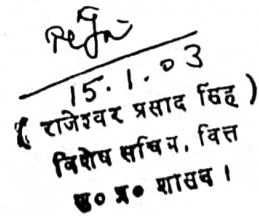 15.1.03
( राजेश्वर प्रसाद सिंह )
विशेष सचिव, वित्त
उ० प्र० शासन ।